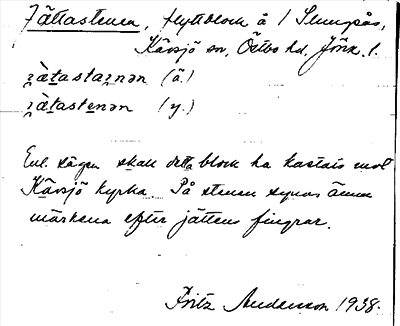 Jättastenen, flyttblock å / Slumpås,
Kävsjö sn, Östbo hd, Jönk. l.
(ä.)
(y.)
Enl. sägen skall detta block ha kastats mot
Kävsjö kyrka. På stenen synas ännu
märkena efter jättens fingrar.
Fritz Anderson 1938.